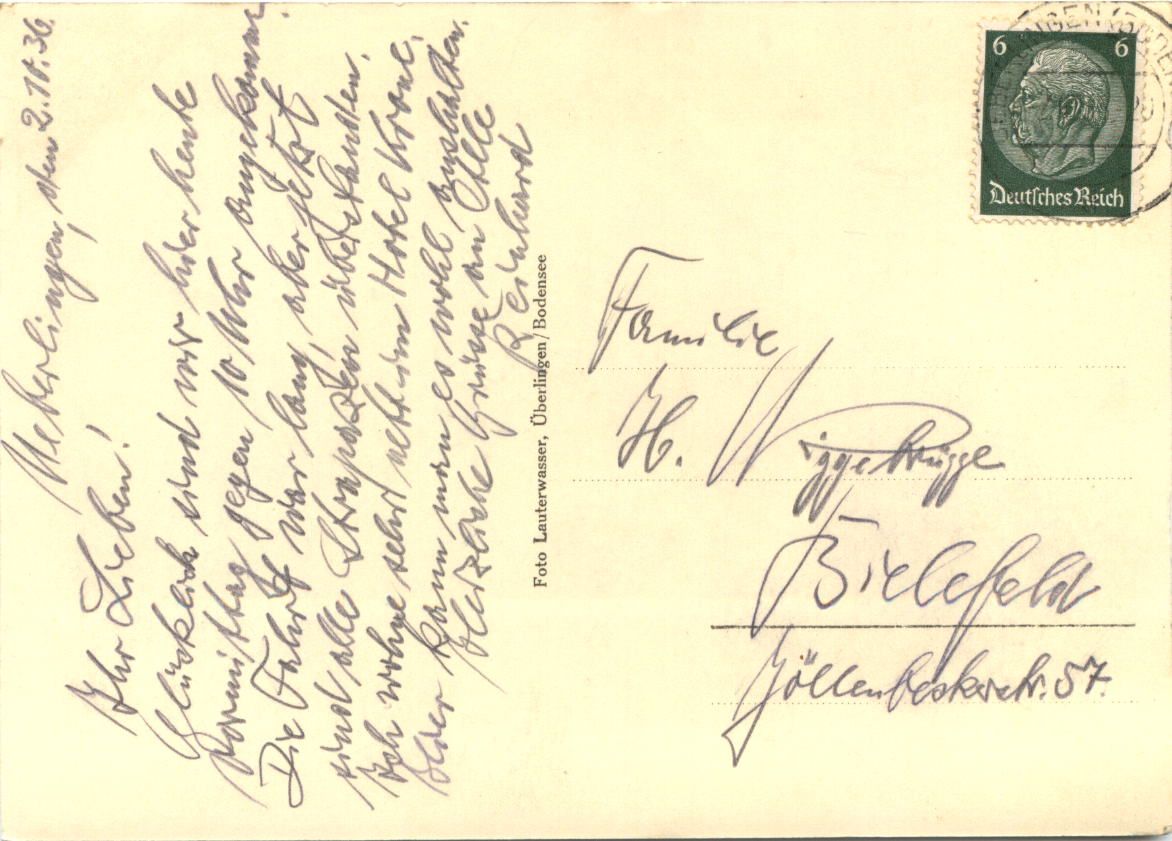 Ueberlingen, den 2.10.36.
Ihr Lieben!
Glücklich sind wir hier heute
Vormittag gegen 10 Uhr angekommen.
Die Fahrt war lang, aber jetzt
sind alle Strapazen überstanden.
Ich wohne sehr nett im Hotel Krone.
Hier kann man es wohl aushalten.
Herzliche Grüsse an Alle
Reinhard
Foto Lauterwasser, Überlingen/Bodensee
6 6
Deutsches Reich
Familie
H. Wiggebrügge
Bielefeld
Jöllenbeckerstr. 57.